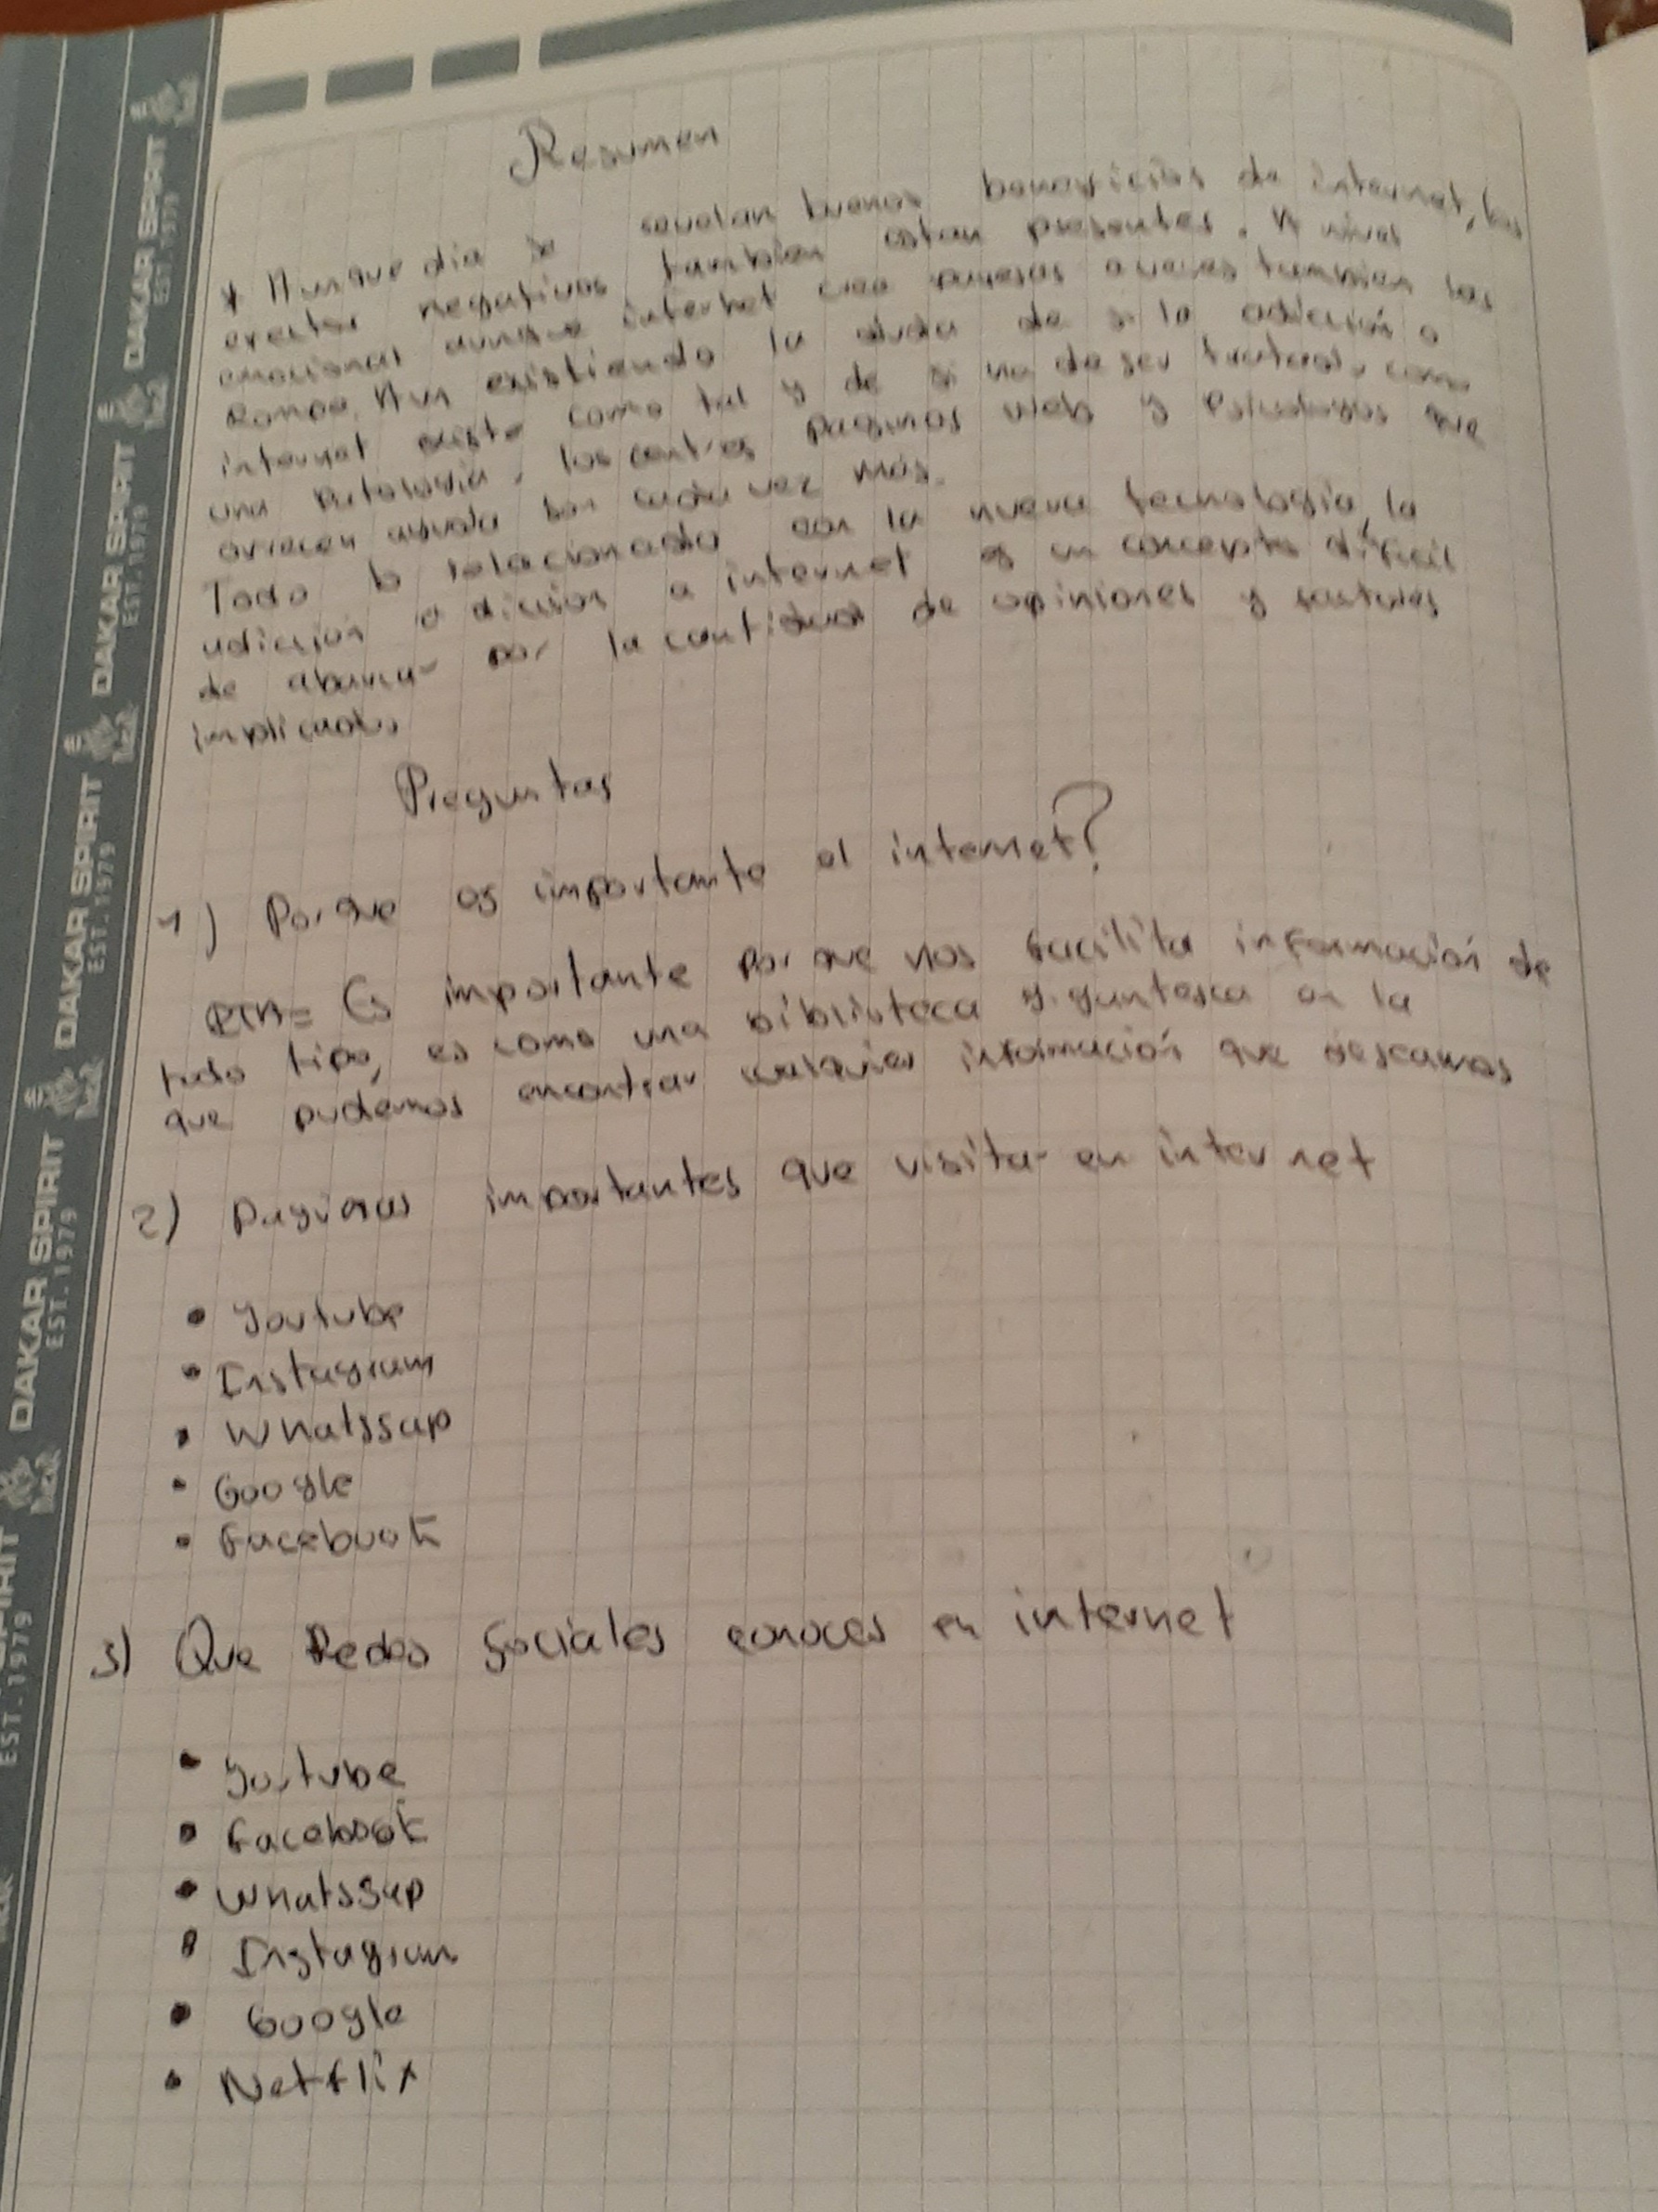 Resumen
* Aunque dia se señalan buenos beneficios de internet, los
efectos negativos tambien estan presentes. A nivel
emocional aunque internet crea parejas a veces tambien las
Rompe. Aun existiendo la duda de si la adicción a
internet existe como tal y de si ha de ser tratado como
una patologia, los centros paginas web y que
ofrecen ayuda son cada vez más.
Todo lo relacionado con la nueva tecnologia, la
adiccion o adiccion a internet es un concepto difícil
de abarcar por la cantidad de opiniones y
implicados
Preguntas
1) Porque es importante el internet?
RTA= Es importante porque nos facilita información de
todo tipo, es como una biblioteca gigantesca en la
que podemos encontrar cualquier información que deseamos
2) Paginas importantes que visitar en internet
• Youtube
• Instagram
• Whatssap
• Google
• Facebook
3) Que Redes Sociales conoces en internet
• Youtube
• Facebook
• Whatssap
• Instagram
• Google
• Netflix
DAKAR SPIRIT
EST. 1979
DAKAR SPIRIT
EST. 1979
DAKAR SPIRIT
EST. 1979
DAKAR SPIRIT
EST. 1979
DAKAR SPIRIT
EST. 1979